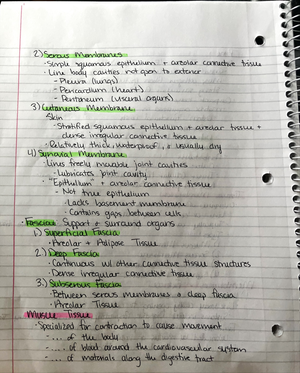 2) Serous Membranes
· Simple squamous epithelium + areolar connective tissue
· Line body cavities not open to exterior
- Pleura (lungs)
- Pericardium (heart)
- Peritoneum (visceral organs)
3) Cutaneous Membrane
· Skin
- Stratified squamous epithelium + areolar tissue +
dense irregular connective tissue
· Relatively thick, waterproof, & usually dry
4) Synovial Membrane
· Lines freely movable joint cavities
- Lubricates joint cavity
· "Epithelium" + areolar connective tissue
- Not true epithelium
- Lacks basement membrane
- Contains gaps between cells
· Fascia: Support & surround organs
1.) Superficial Fascia
· Areolar + Adipose Tissue
2) Deep Fascia
· Continuous w/ other connective tissue structures
· Dense irregular connective tissue
3.) Subserous Fascia
· Between serous membranes & deep fascia
· Areolar Tissue
Muscle Tissue
· Specialized for contraction to cause movement
- .... of the body
- .... of blood around the cardiovascular system
- .... of materials along the digestive tract